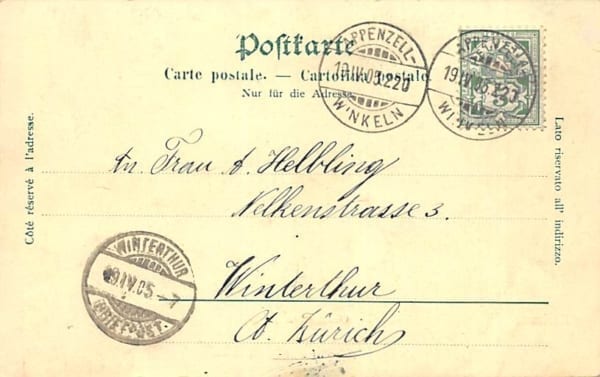 Postkarte
Carte postale. — Cartolina postale.
Nur für die Adresse.
APPENZELL-
19.IV.05.220
WINKELN
APPENZELL-
19.IV.05.220
WINKELN
Côté réservé à l'adresse.
Lato riservato all' indirizzo.
An Frau A. Helbling
Nelkenstrasse 3.
Winterthur
Ct. Zürich
WINTERTHUR
19.IV.05. -7
BRIEFPOST.